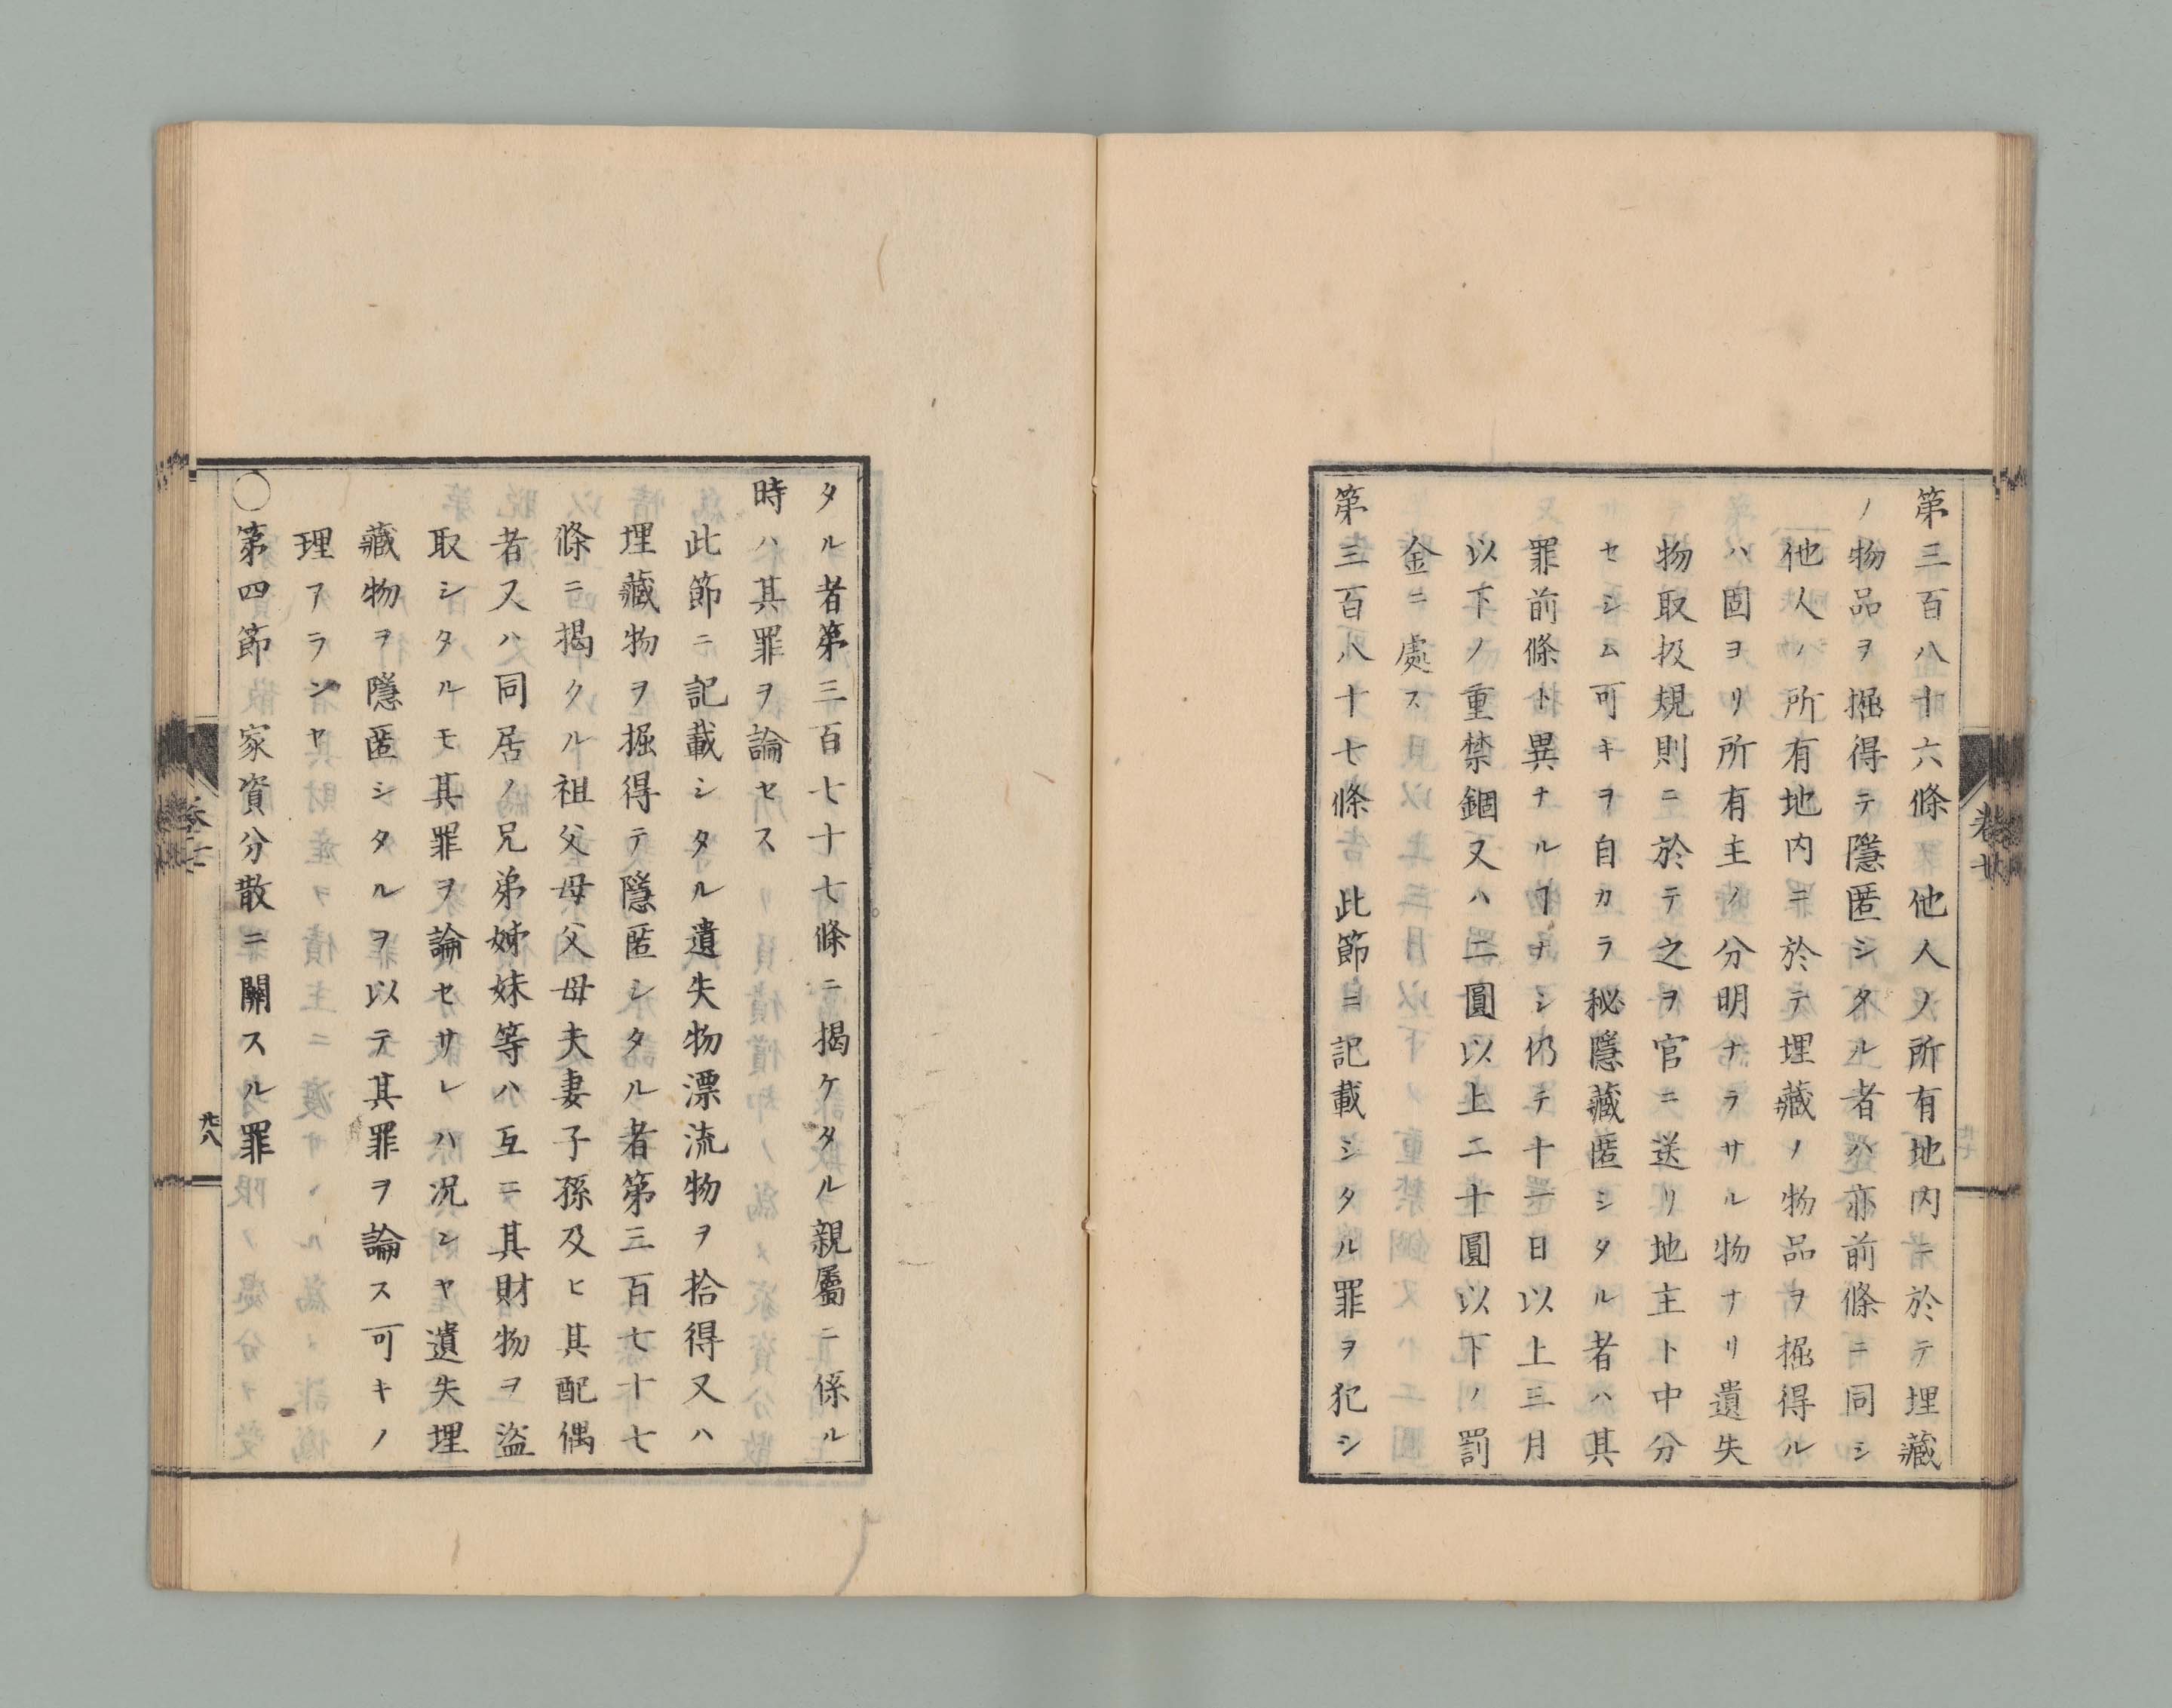 第三百八十六條　他人ノ所有地内ニ於テ埋藏
ノ物品ヲ掘得テ隱匿シタル者ハ亦前條ニ同シ
他人ノ所有地内ニ於テ埋藏ノ物品ヲ掘得ル
ハ固ヨリ所有主ノ分明ナラサル物ナリ遺失
物取扱規則ニ於テ之ヲ官ニ送リ地主ト中分
セシム可キヲ自カラ秘隱藏匿シタル者ハ其
罪前條ト異ナルヿナシ仍テ十一日以上三月
以下ノ重禁錮又ハ二圓以上二十圓以下ノ罰
金ニ處ス
第三百八十七條　此節ニ記載シタル罪ヲ犯シ
タル者第三百七十七條ニ揭ケタル親屬ニ係ル
時ハ其罪ヲ論セス
此節ニ記載シタル遺失物漂流物ヲ拾得又ハ
埋藏物ヲ掘得テ隱匿シタル者第三百七十七
條ニ揭クル祖父母父母夫妻子孫及ヒ其配偶
者又ハ同居ノ兄弟姊妹等ハ互ニ其財物ヲ盜
取シタルモ其罪ヲ論セサレハ况ンヤ遺失埋
藏物ヲ隱匿シタルヲ以テ其罪ヲ論ス可キノ
理アランヤ
○第四節　家資分散ニ關スル罪
廿八